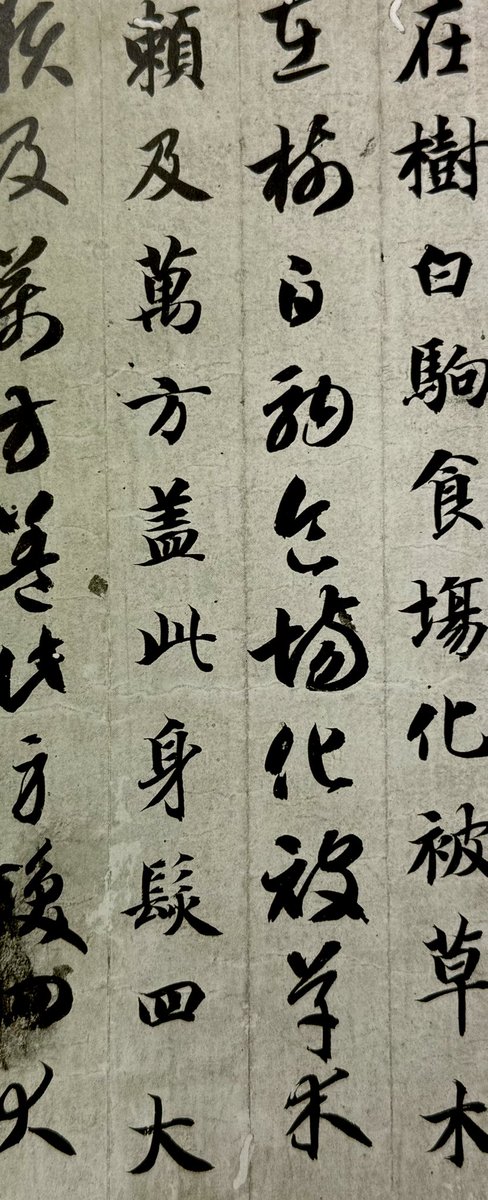 在樹白駒食塲化被草木
在樹白駒食場化被草木
頼及萬方盖此身髮四大
頼及萬方盖此身髮四大